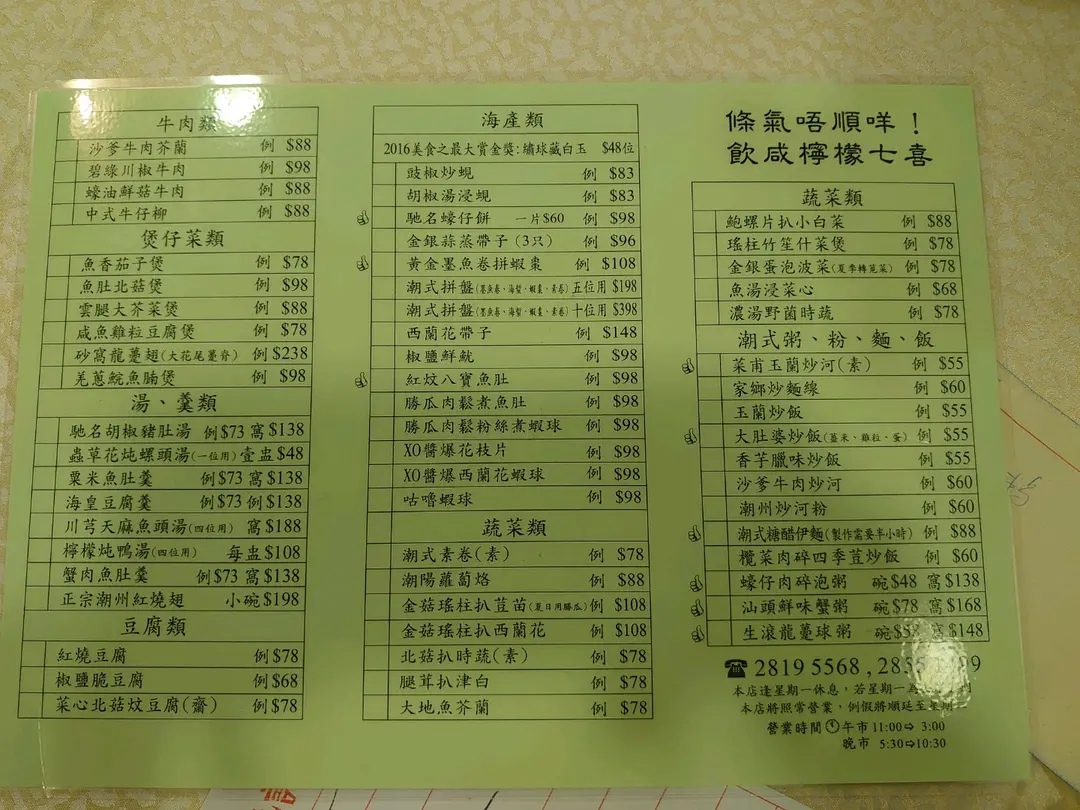 牛肉類
沙爹牛肉芥蘭 例 $88
碧綠川椒牛肉 例 $98
蠔油鮮菇牛肉 例 $88
中式牛仔柳 例 $88
煲仔菜類
魚香茄子煲 例 $78
魚肚北菇煲 例 $98
雲腿大芥菜煲 例 $88
咸魚雞粒豆腐煲 例 $78
砂窩龍躉翅(大花尾躉脊) 例 $238
羌蔥鯇魚腩煲 例 $98
湯、羹類
馳名胡椒豬肚湯 例$73 窩$138
蟲草花炖螺頭湯(一位用) 壹盅$48
粟米魚肚羹 例$73 窩$138
海皇豆腐羹 例$73 例$138
川芎天麻魚頭湯(四位用) 窩$188
檸檬炖鴨湯(四位用) 每盅$108
蟹肉魚肚羹 例$73 窩$138
正宗潮州紅燒翅 小碗$198
豆腐類
紅燒豆腐 例$78
椒鹽脆豆腐 例$68
菜心北菇炆豆腐(齋) 例$78
海產類
2016美食之最大賞金獎:繡球藏白玉 $48位
豉椒炒蜆 例 $83
胡椒湯浸蜆 例 $83
馳名蠔仔餅 一片$60 例 $98
金銀蒜蒸帶子(3只) 例 $96
黃金墨魚卷拼蝦棗 例 $108
潮式拼盤(墨魚卷、海蜇、蝦棗、素卷) 五位用 $198
潮式拼盤(墨魚卷、海蜇、蝦棗、素卷) 十位用 $398
西蘭花帶子 例 $148
椒鹽鮮魷 例 $98
紅炆八寶魚肚 例 $98
勝瓜肉鬆煮魚肚 例 $98
勝瓜肉鬆粉絲煮蝦球 例 $98
XO醬爆花枝片 例 $98
XO醬爆西蘭花蝦球 例 $98
咕嚕蝦球 例 $98
蔬菜類
潮式素卷(素) 例 $78
潮陽蘿蔔烙 例 $88
金菇瑤柱扒荳苗(夏日用勝瓜) 例 $108
金菇瑤柱扒西蘭花 例 $108
北菇扒時蔬(素) 例 $78
腿茸扒津白 例 $78
大地魚芥蘭 例 $78
條氣唔順咩!
飲咸檸檬七喜
蔬菜類
鮑螺片扒小白菜 例 $88
瑤柱竹笙什菜煲 例 $78
金銀蛋泡波菜(夏季轉莧菜) 例 $78
魚湯浸菜心 例 $68
濃湯野菌時蔬 例 $78
潮式粥、粉、麵、飯
菜甫玉蘭炒河(素) 例 $55
家鄉炒麵線 例 $60
玉蘭炒飯 例 $55
大肚婆炒飯(薑米、雞粒、蛋) 例 $55
香芋臘味炒飯 例 $55
沙爹牛肉炒河 例 $60
潮州炒河粉 例 $60
潮式糖醋伊麵(製作需要半小時) 例 $88
欖菜肉碎四季荳炒飯 例 $60
蠔仔肉碎泡粥 碗$48 窩$138
汕頭鮮味蟹粥 碗$78 窩$168
生滾龍躉球粥 碗$58 窩$148
☎ 2819 5568 , 2855
本店逢星期一休息,若星期一為
本店將照常營業,例假將順延至星期
營業時間 午市 11:00⇨ 3:00
晚市 5:30⇨10:30